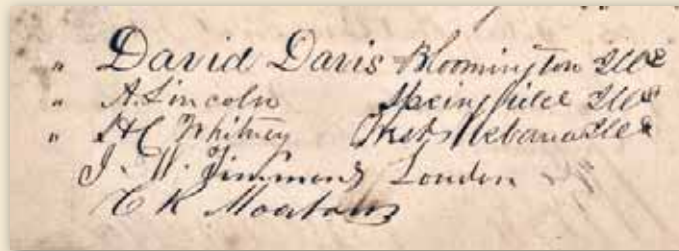 " David Davis Bloomington Ills
" A. Lincoln Springfield Ills
" H C Whitney West Urbana Ills
J. W. London
C K